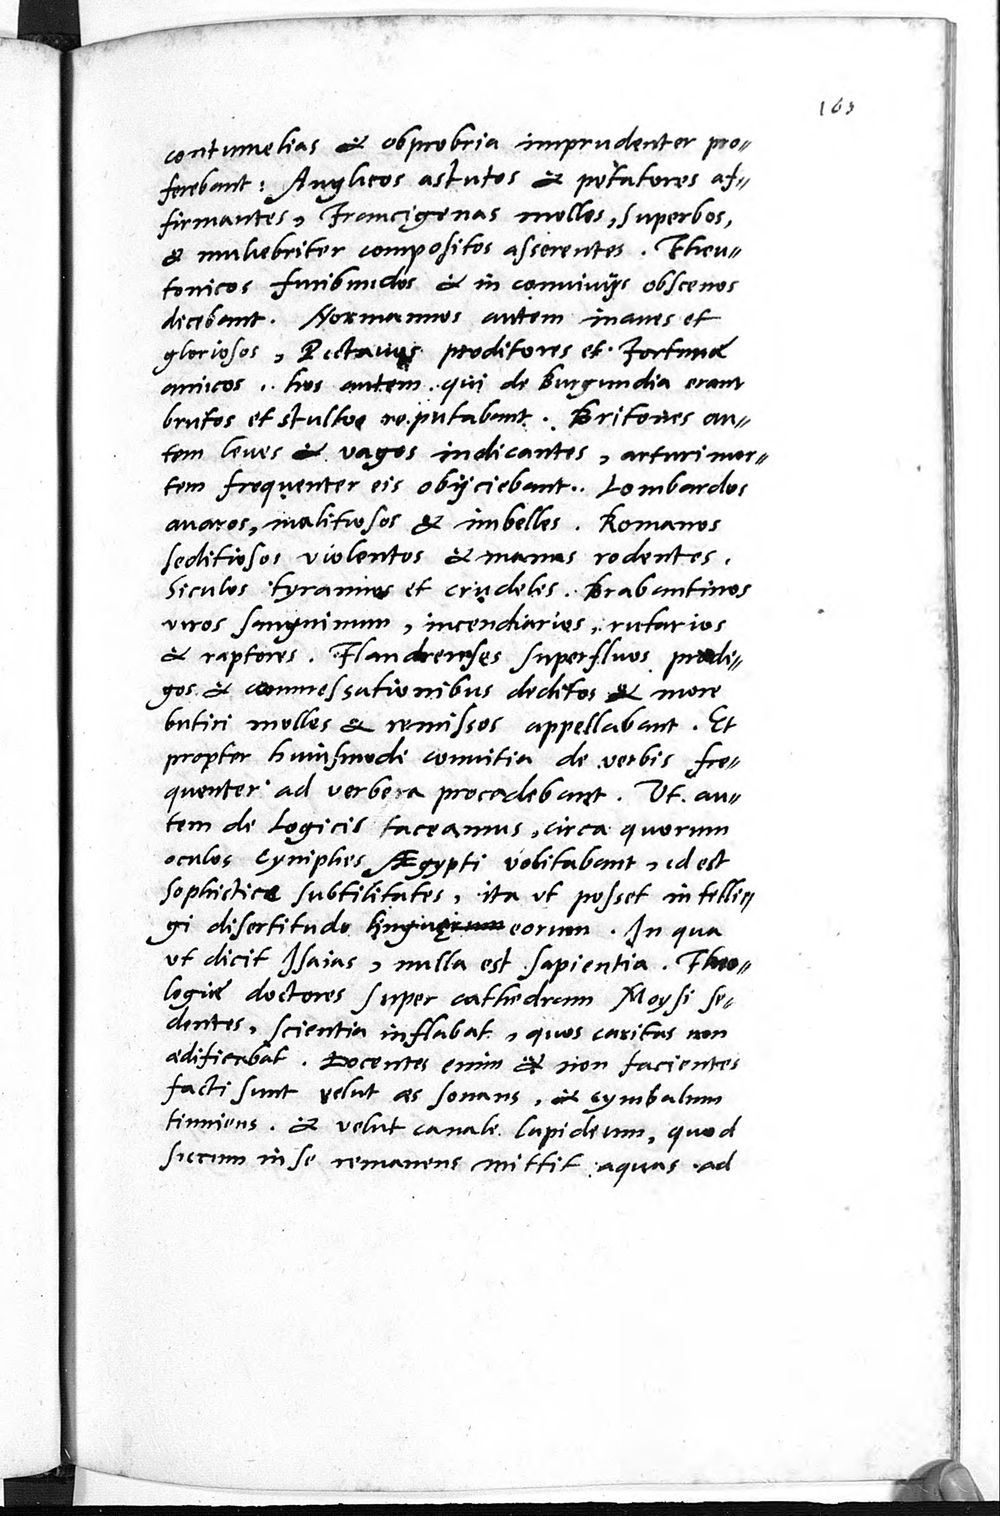 163
contumelias & obprobria imprudenter pro„
ferebant: Anglicos astutos & potatores af„
firmantes, Francigenas molles, superbos,
& muliebriter compositos asserentes. Theu„
tonicos furibundos & in convivijs obscenos
dicebant. Normannos autem inanes et
gloriosos, Pictavos proditores et Fortunæ
amicos. hos autem qui de Burgundia erant
brutos et stultos reputabant. Britones au„
tem leves & vagos indicantes, arturi mor„
tem frequenter eis obijciebant. Lombardos
avaros, malitiosos & imbelles. Romanos
seditiosos violentos & manus rodentes.
Siculos tyrannos et crudeles. Brabantinos
viros sanguinum, incendiarios, rutarios
& raptores. Flandrenses superfluos prodi„
gos & commessationibus deditos & more
butiri molles & remissos appellabant. Et
propter huiusmodi convitia de verbis fre„
quenter ad verbera procedebant. Ut au„
tem de Logicis taceamus, circa quorum
oculos Cyniphes Ægypti volitabant, id est
sophisticæ subtilitates, ita ut posset intelli„
gi disertitudo linguarum eorum. In qua
ut dicit Isaias, nulla est sapientia. Theo„
logiæ doctores super cathedram Moysi se„
dentes, scientia inflabat, quos caritas non
ædificabat. Docentes enim & non facientes
facti sunt velut æs sonans, & cymbalum
tinniens. & velut canale lapideum, quod
siccum in se remanens mittit aquas ad